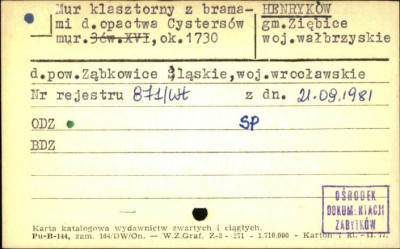 Mur klasztorny z brama-
mi d.opactwa Cystersów
mur. 36w.XVI, ok.1730
HENRYKÓW
gm.Ziębice
woj.wałbrzyskie
d.pow.Ząbkowice Śląskie,woj.wrocławskie
Nr rejestru 871/Wł z dn. 21.09.1981
ODZ SP
BDZ
Karta katalogowa wydawnictw zwartych i ciągłych.
Pu-B-144, zam. 144/DW/On. — W.Z.Graf. Z-2 - 271 - 1.710.000 - Karton
OŚRODEK
DOKUMENTACJI
ZABYTKÓW